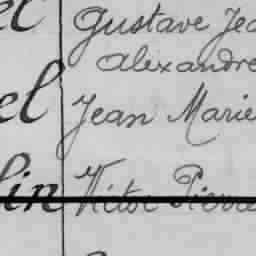 Gustave Jea
Alexandre
el Jean Marie
lin Victor Pierre